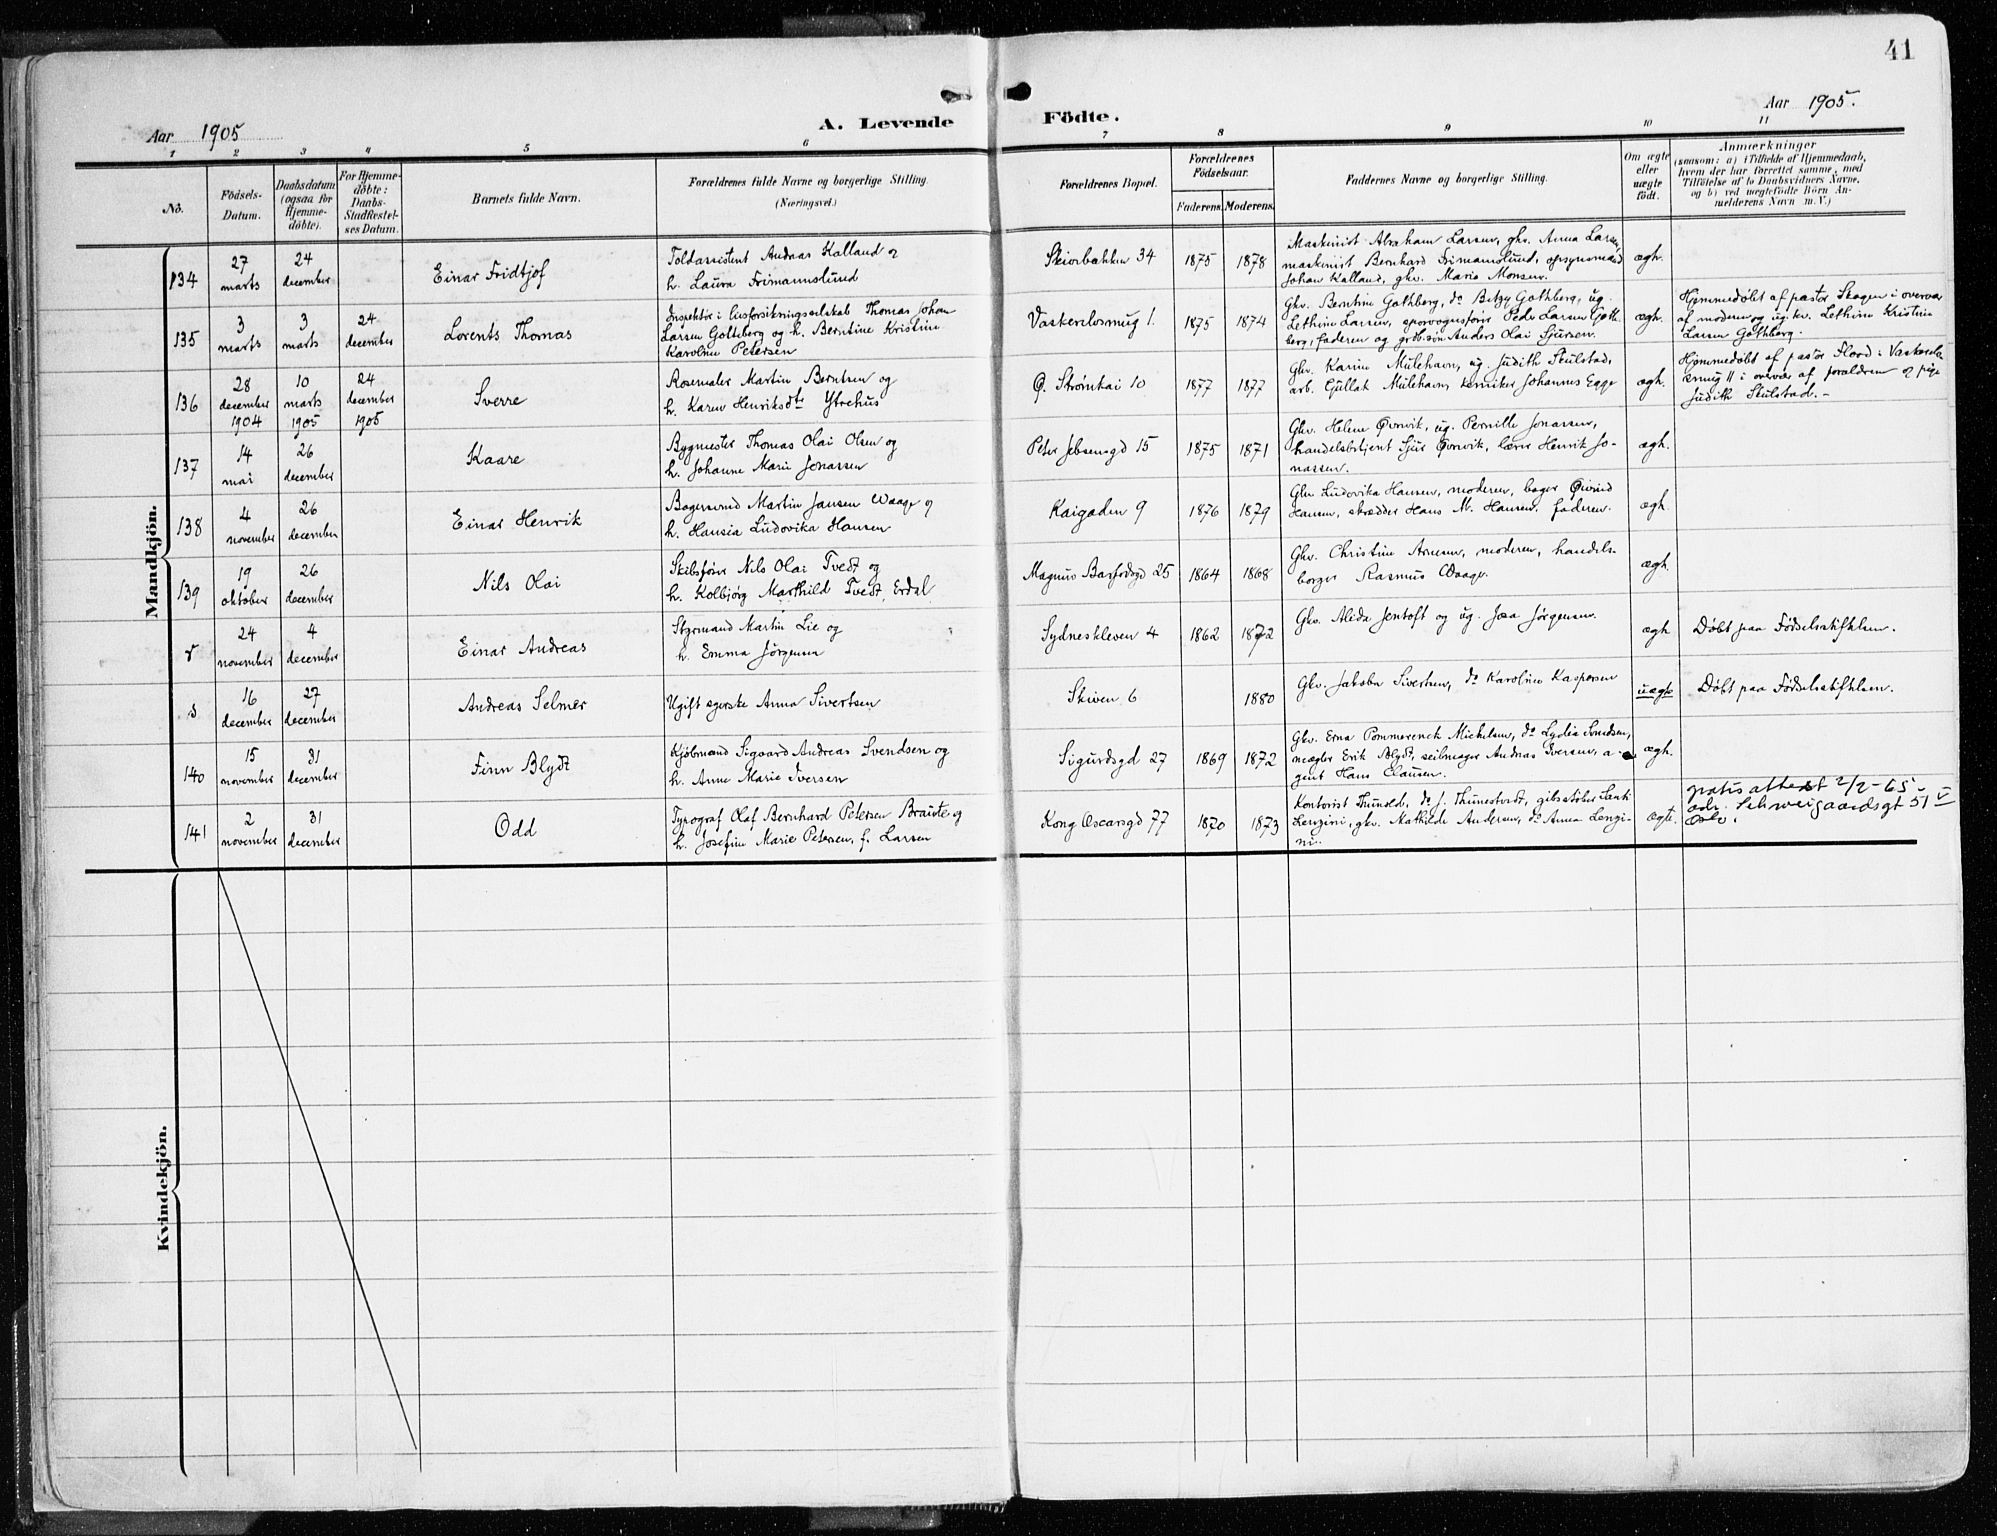 41
Aar 1905
A. Levende Födte.
Aar 1905.
1 2 3 4 5 6 7 8 9 10 11
No.
Födsels-
Datum.
Daabsdatum
(ogsaa for
Hjemme-
döbte).
For Hjemme-
döbte:
Daabs-
Stadfæstel-
ses Datum.
Barnets fulde Navn.
Forældrenes fulde Navne og borgerlige Stilling
(Næringsvei.)
Forældrenes Bopæl.
Forældrenes
Födselsaar.
Faderens. Moderens.
Faddernes Navne og borgerlige Stilling.
Om ægte
eller
uægte
födt.
Anmærkninger
(saasom: a) i Tilfælde af Hjemmedaab,
hvem der har forrettet samme, med
Tilföielse af to Daabsvidners Navne,
og b) ved uægtefödte Börn An-
melderens Navn m. V.)
Mandkjön.
134
27
marts
24
december
Einar Fridtjof
Toldassistent Andreas Kalland og
h. Laura Frimannslund
Skiorbakken 34
1875
1878
Maskinist Abraham Larsen, gkv. Anna Larsen,
maskinist Bernhard Frimannslund, opsynsmand
Johan Kalland, gkv. Marie Monsen.
ægh.
135
3
marts
3
marts
24
december
Lorents Thomas
Inspektør i livsforsikringsselskab Thomas Johan
Larsen Gothberg og h. Berntine Kristine
Karoline Petersen
Vaskerelvsmug 1.
1875
1874
Gkv. Berntine Gothberg, do Betzy Gothberg, ug.
Lethine Larsen, sporvognsfører Peder Larsen Goth-
berg, faderen og grbb.søn Anders Olai Sjursen.
ægh.
Hjemmedøbt af pastor Skagen i overvær
af moderen og ug. kv. Lethine Kristine
Larsen Gothberg.
136
28
december
1904
10
marts
1905
24
december
1905
Sverre
Rosemaler Martin Berntsen og
h. Karen Henriksdtr Ytrehus
Ø. Strømkai 10
1877
1877
Gkv. Karine Mulehavn, ug. Judith Skulstad,
arb. Gullak Mulehavn, Johannes Egge
ægh.
Hjemmedøbt af pastor Flood i Vaskerelv-
smug 11 i overvær af forældrene og pige
Judith Skulstad.-
137
14
mai
26
december
Kaare
Bygmester Thomas Olai Olsen og
h. Johanne Marie Jonassen
Peter Jebsensgd 15
1875
1871
Gkv. Helene Øvrevik, ug. Pernille Jonassen,
handelsbetjent Sjur Øvrevik, lærer Henrik Jo-
nassen.
ægh.
138
4
november
26
december
Einar Henrik
Bagersvend Martin Jansen Waage og
h. Hansia Ludovika Hansen
Kaigaden 9
1876
1879
Gkv Ludovika Hansen, moderen, bager Øivind
Hansen, skrædder Hans M. Hansen. faderen.
ægh.
139
19
oktober
26
december
Nils Olai
Skibsfører Nils Olai Tvedt og
h. Kolbjørg Marthild Tvedt, Erdal
Magnus Barfodsgd 25
1864
1868
Gkv. Christine Arnesen, moderen, handels-
borger Rasmus Waage.
ægh.
r
24
november
4
december
Einar Andreas
Styrmand Martin Lie og
h. Emma Jørgensen
Sydneskleven 4
1862
1872
Gkv. Alida Jentoft og ug. Josa Jørgensen.
ægh
Døbt paa Fødselsstiftelsen.
s
16
december
27
december
Andreas Selmer
Ugift syerske Anna Sivertsen
Skiven 6
1880
Gkv. Jakobia Sivertsen, do Karoline Kaspersen
uægte
Døbt paa Fødselsstiftelsen.
140
15
november
31
december
Finn Blydt
Kjøbmand Sigvard Andreas Svendsen og
h. Anne Marie Iversen
Sigurdsgd 27
1869
1872
Gkv. Erna Pommerenck Michelsen, do Lydia Svendsen,
mægler Erik Blydt, seilmager Andreas Iversen, a-
gent Hans Clausen.
ægh.
141
2
november
31
december
Odd
Typograf Olaf Bernhard Petersen Braute og
h. Josefine Marie Petersen, f. Larsen
Kong Oscarsgd 77
1870
1873
Kontorist Thunold, do J. Thunestvedt, gibsstøber Santi
Lengini, gkv. Mathilde Andersen, do Anna Lengi-
ni.
ægte.
gratis attest 2/2-65-
adr. Schweigaardsgt 51 V
Oslo.
Kvindekjön.